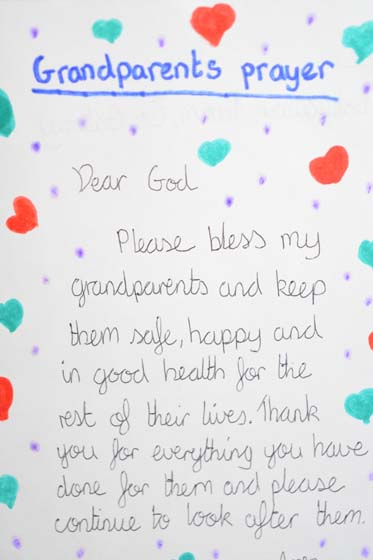 Grandparents prayer
Dear God
Please bless my
grandparents and keep
them safe, happy and
in good health for the
rest of their lives. Thank
you for everything you have
done for them and please
continue to look after them.